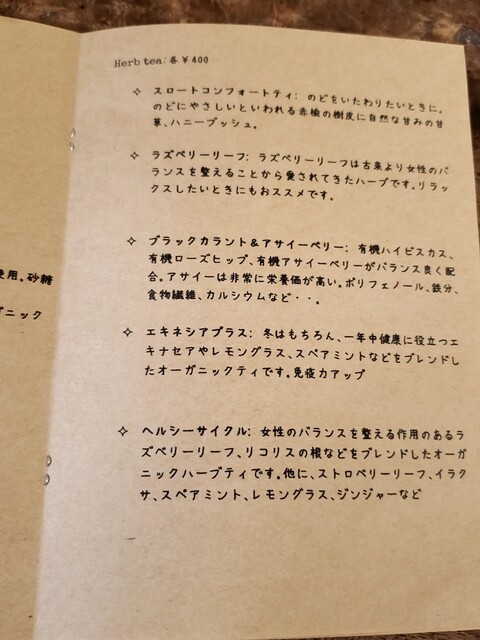 Herb tea:各￥400
✧ スロートコンフォートティ: のどをいたわりたいときに。
のどにやさしいといわれる赤楡の樹皮に自然な甘みの甘
草、ハニーブッシュ。
✧ ラズベリーリーフ: ラズベリーリーフは古来より女性のバ
ランスを整えることから愛されてきたハーブです。リラッ
クスしたいときにもおススメです。
✧ ブラックカラント＆アサイーベリー: 有機ハイビスカス、
有機ローズヒップ、有機アサイーベリーがバランス良く配
合。アサイーは非常に栄養価が高い。ポリフェノール、鉄分、
食物繊維、カルシウムなど・・。
✧ エキネシアプラス: 冬はもちろん、一年中健康に役立つエ
キナセアやレモングラス、スペアミントなどをブレンドし
たオーガニックティです。免疫力アップ
✧ ヘルシーサイクル: 女性のバランスを整える作用のあるラ
ズベリーリーフ、リコリスの根などをブレンドしたオーガ
ニックハーブティです。他に、ストロベリーリーフ、イラク
サ、スペアミント、レモングラス、ジンジャーなど
使用。砂糖
ガニック